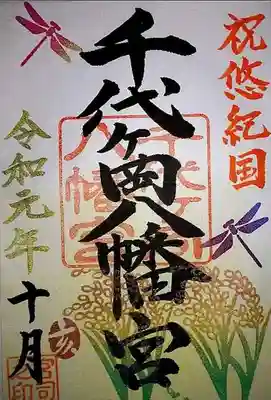 祝悠紀国
千代ヶ岡八幡宮
千代ヶ岡八幡宮
令和元年
十月
亥
宮司之印